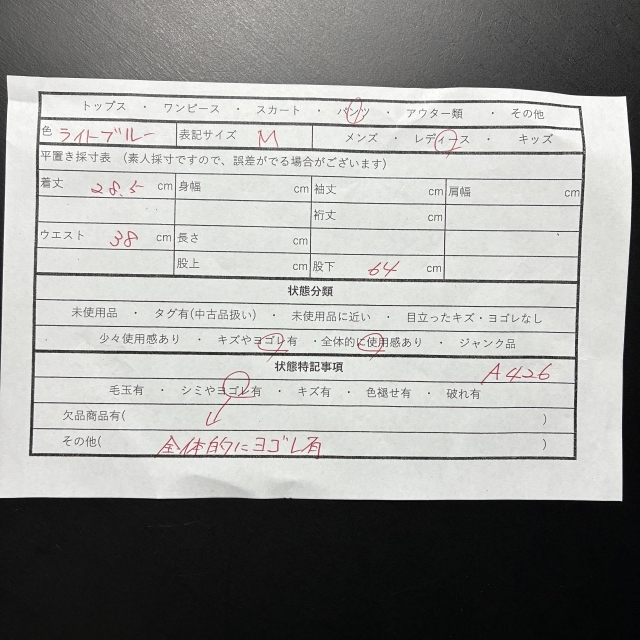 トップス ・ ワンピース ・ スカート ・ パンツ ・ アウター類 ・ その他
色 ライトブルー 表記サイズ M メンズ ・ レディース ・ キッズ
平置き採寸表 (素人採寸ですので、誤差がでる場合がございます)
着丈 28.5 cm 身幅 cm 袖丈 cm 肩幅 cm
裄丈 cm
ウエスト 38 cm 長さ cm
股上 cm 股下 64 cm
状態分類
未使用品 ・ タグ有(中古品扱い) ・ 未使用品に近い ・ 目立ったキズ・ヨゴレなし
少々使用感あり ・ キズやヨゴレ有 ・全体的に使用感あり ・ ジャンク品
状態特記事項 A426
毛玉有 ・ シミやヨゴレ有 ・ キズ有 ・ 色褪せ有 ・ 破れ有
欠品商品有( )
その他( 全体的にヨゴレ有 )